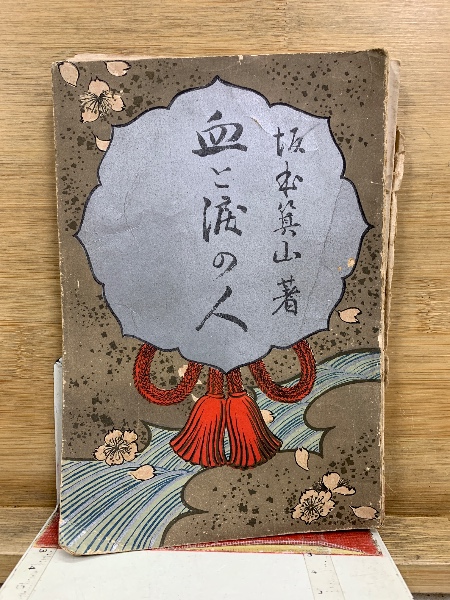 坂本箕山著
血と涙の人